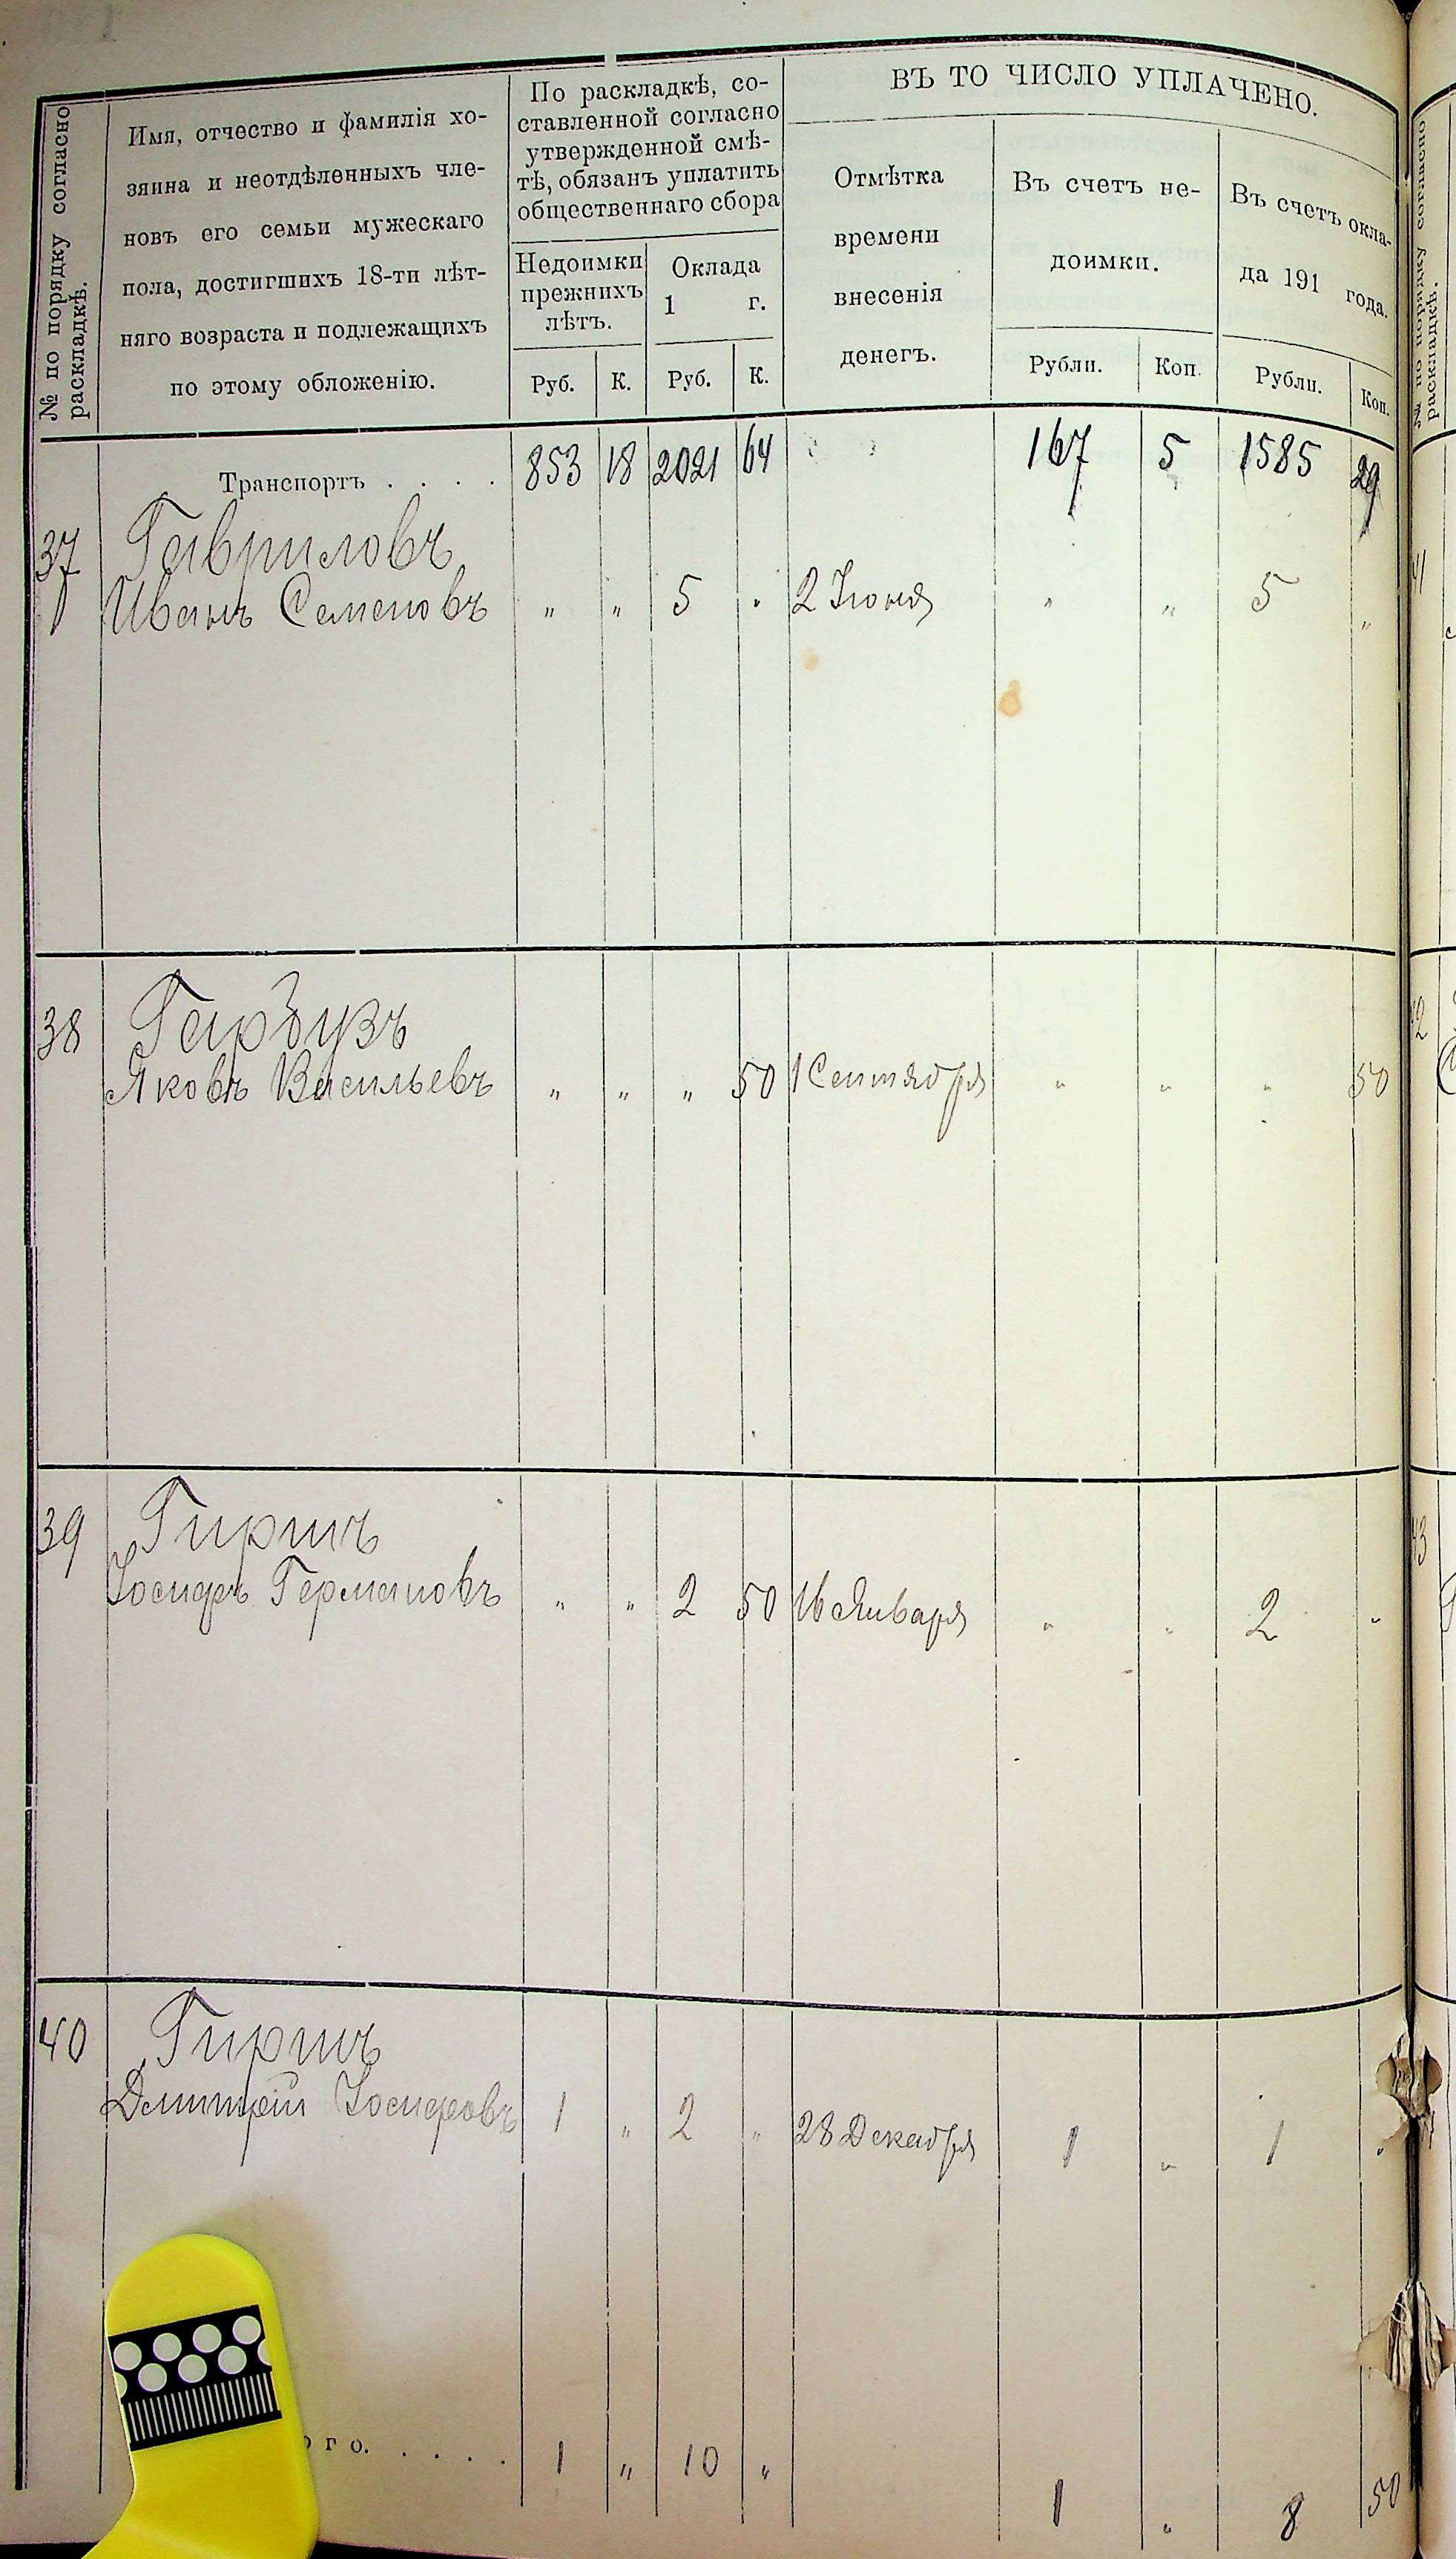 № по порядку согласно
раскладкѣ.
Имя, отчество и фамилія хо-
зяина и неотдѣленныхъ чле-
новъ его семьи мужескаго
пола, достигшихъ 18-ти лѣт-
няго возраста и подлежащихъ
по этому обложенію.
По раскладкѣ, со-
ставленной согласно
утвержденной смѣ-
тѣ, обязанъ уплатить
общественнаго сбора
Недоимки
прежнихъ
лѣтъ.
Оклада
1 г.
Руб. К. Руб. К.
ВЪ ТО ЧИСЛО УПЛАЧЕНО.
Отмѣтка
времени
внесенія
денегъ.
Въ счетъ не-
доимки.
Рубли. Коп.
Въ счетъ окла-
да 191 года.
Рубли. Коп.
Транспортъ . . . . 853 18 2021 64 167 5 1585 29
37 Гавриловъ
Иванъ Семеновъ " " 5 " 2 Іюня " " 5 "
38 Гарбузъ
Яковъ Васильевъ " " " 50 1 Сентября " " " 50
39 Гиршъ
Іосифъ Германовъ " " 2 50 16 Января " " 2 "
40 Гиршъ
Дмитрій Іосифовъ 1 " 2 " 28 Декабря 1 " 1 "
ого. . . . . 1 " 10 " 1 " 8 50
№ по порядку согласно
раскладкѣ.